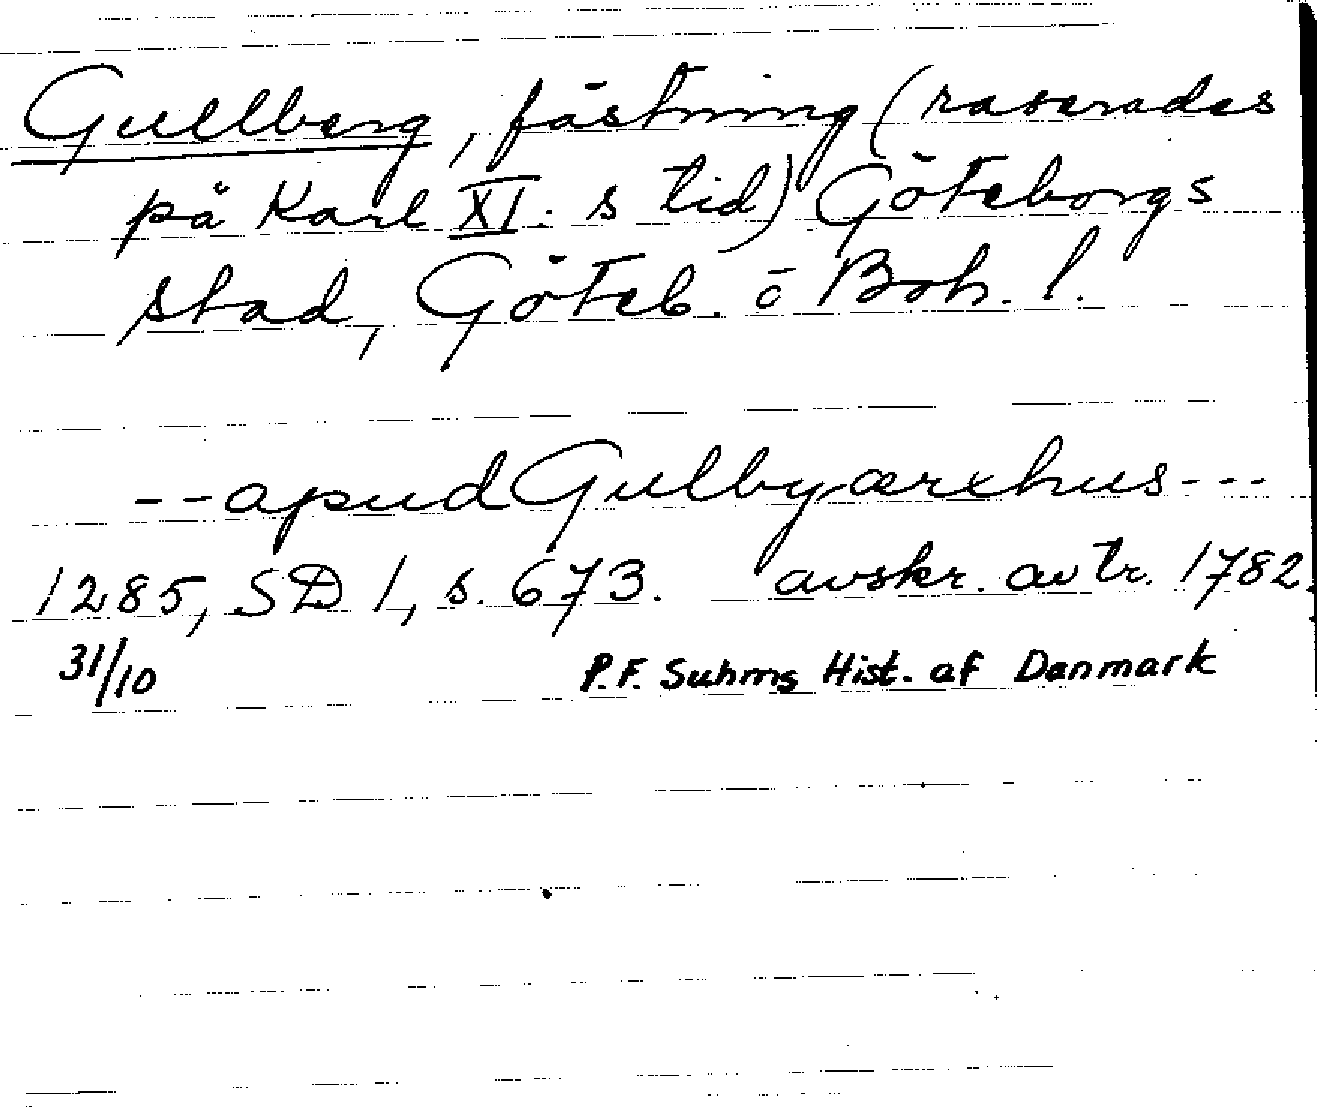 Gullberg, fästning (raserades
på Karl XI:s tid) Göteborgs
stad, Göteb. o Boh. l.
--apud Gulbyærxhus---
1285, SD 1, s. 673. avskr. av tr. 1782.
31/10 P.F. Suhms Hist. af Danmark